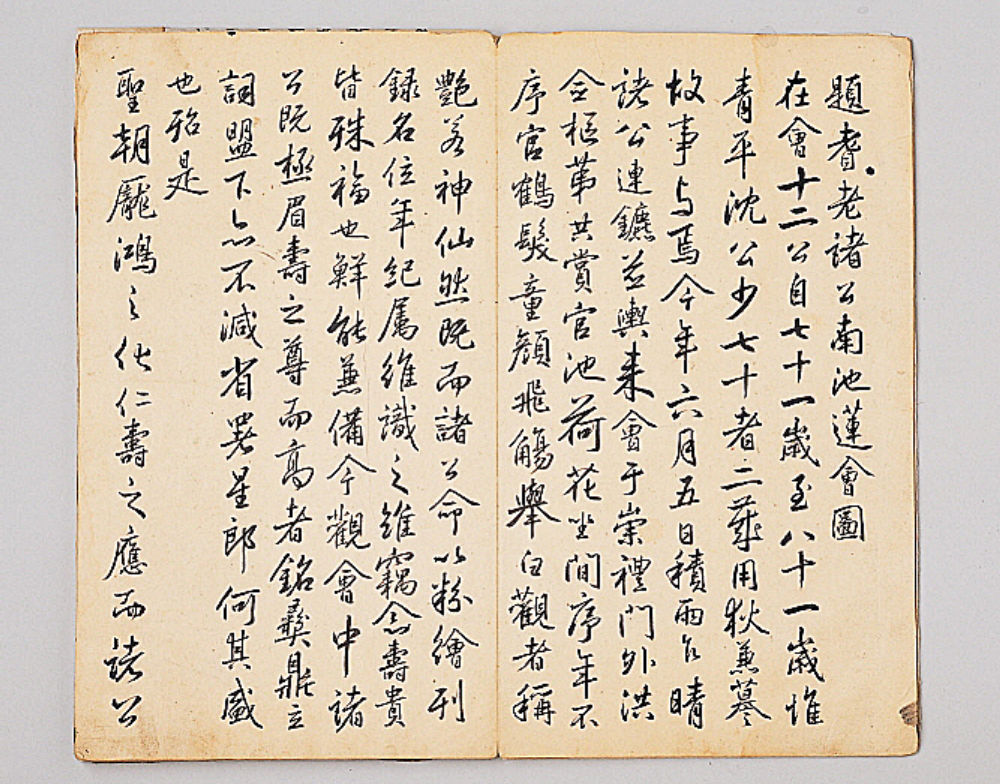 題耆老諸公南池蓮會圖
在會十二公自七十一歲至八十一歲惟
青平沈公少七十者二歲用狄兼謩
故事与焉今年六月五日積雨乍晴
諸公連鑣並輿来會于崇禮門外洪
僉樞第共賞官池荷花坐間序年不
序官鶴髮童顔飛觴擧白觀者稱
艶若神仙然既而諸公命以粉繪列
録名位年紀属維識之維竊念壽貴
皆殊福也鮮能兼備今觀會中諸
公既極眉壽之尊而高者銘彛鼎立
詞盟下亦不減省署星郎何其盛
也殆是
聖朝厖鴻之化仁壽之應而諸公